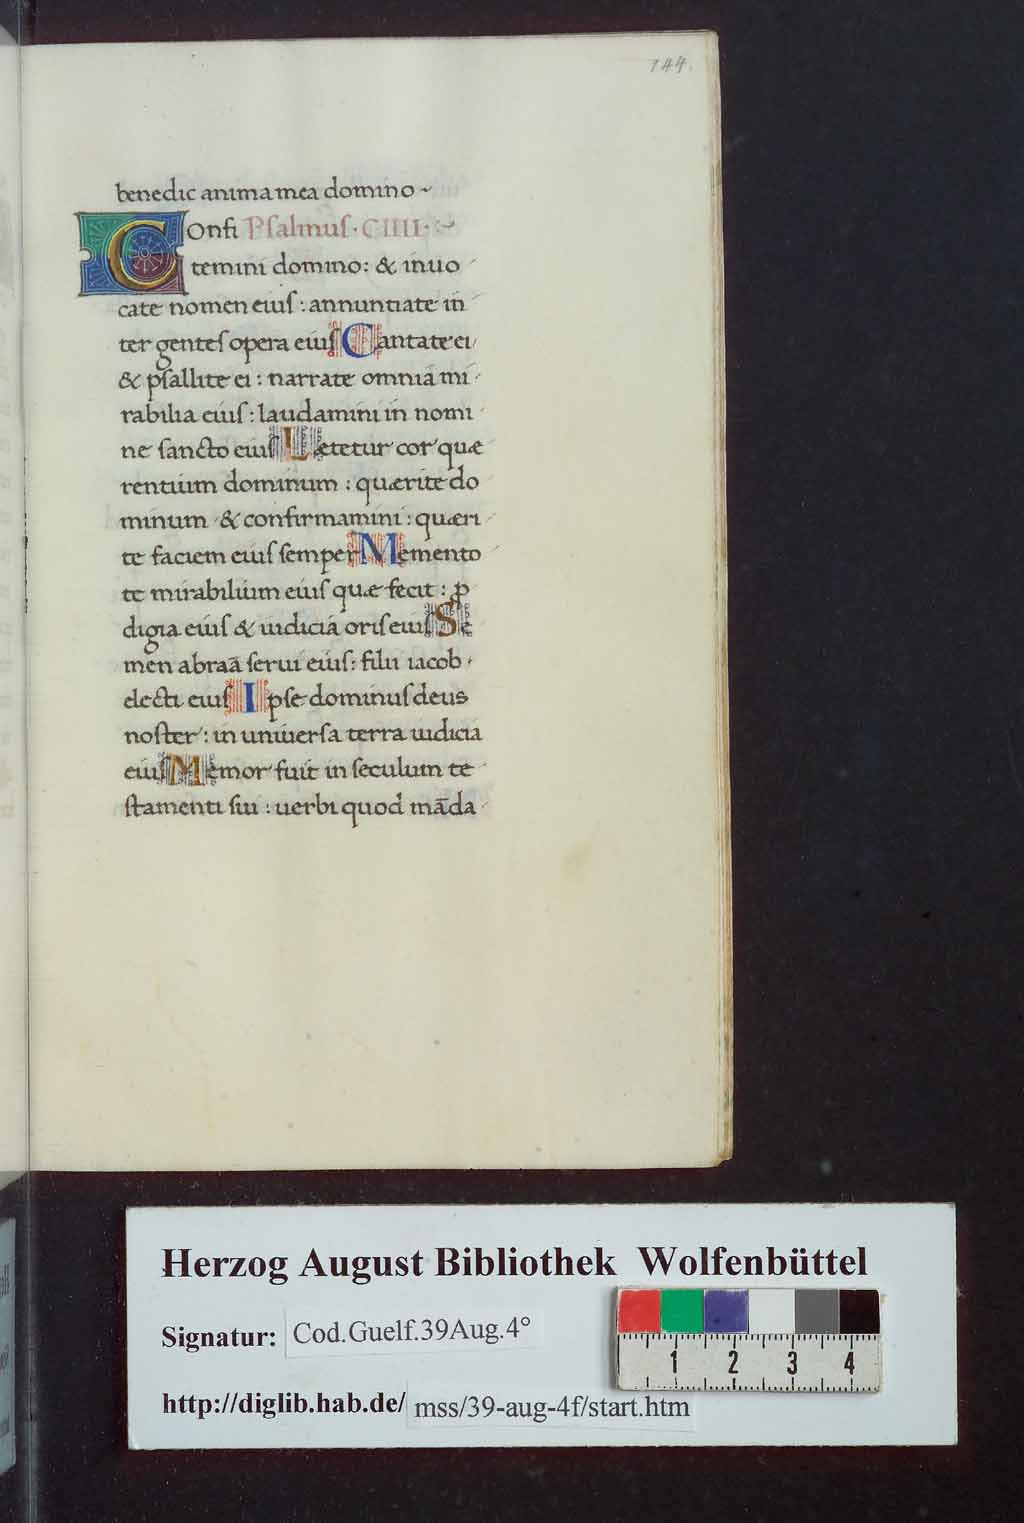 144.
benedic anima mea domino ~
Confi Psalmuſ · CIIII · ~
temini domino: & inuo
cate nomen eiuſ : annuntiate in
ter genteſ opera eiuſ Cantate ei
& pſallite ei : narrate omnia mi
rabilia eiuſ : laudamini in nomi
ne ſancto eiuſ Letetur cor quæ
rentium dominum : quærite do
minum & confirmamini : quæri
te faciem eiuſ ſemper Memento
te mirabilium eiuſ quæ fecit : ꝓ
digia eiuſ & iudicia oriſ eiuſ Se
men abraā ſerui eiuſ : filii iacob
electi eiuſ Ipſe dominuſ deus
noſter : in uniuerſa terra iudicia
eiuſ Memor fuit in ſeculum te
ſtamenti ſui : uerbi quod māda
Herzog August Bibliothek Wolfenbüttel
Signatur: Cod.Guelf.39Aug.4°
1 2 3 4
http://diglib.hab.de/ mss/39-aug-4f/start.htm